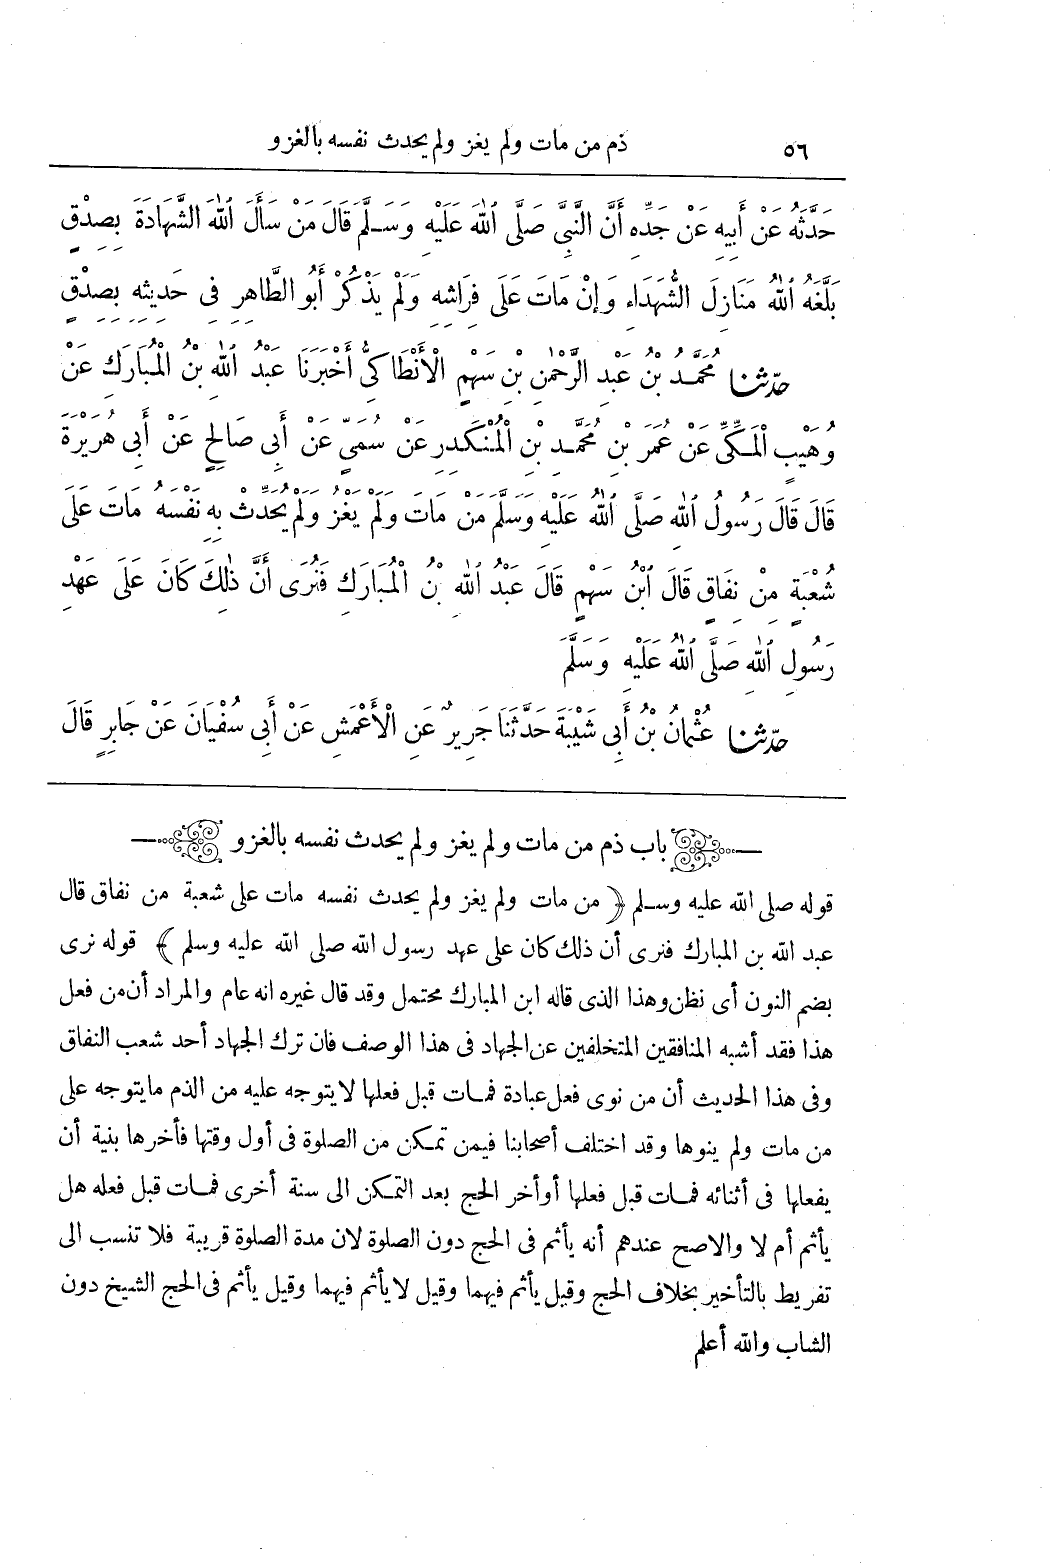 ٥٦ ذم من مات ولم يغز ولم يحدث نفسه بالغزو
حَدَّثَهُ عَنْ أَبِيهِ عَنْ جَدِّهِ أَنَّ النَّبِيَّ صَلَّى ٱللَّهُ عَلَيْهِ وَسَلَّمَ قَالَ مَنْ سَأَلَ ٱللَّهَ الشَّهَادَةَ بِصِدْقٍ
بَلَّغَهُ ٱللَّهُ مَنَازِلَ الشُّهَدَاءِ وَإِنْ مَاتَ عَلَى فِرَاشِهِ وَلَمْ يَذْكُرْ أَبُو الطَّاهِرِ فِى حَدِيثِهِ بِصِدْقٍ
حدّثنا مُحَمَّدُ بْنُ عَبْدِ الرَّحْمٰنِ بْنِ سَهْمٍ الْأَنْطَاكِىُّ أَخْبَرَنَا عَبْدُ ٱللَّهِ بْنُ الْمُبَارَكِ عَنْ
وُهَيْبٍ الْمَكِّىِّ عَنْ عُمَرَ بْنِ مُحَمَّدِ بْنِ الْمُنْكَدِرِ عَنْ سُمَيٍّ عَنْ أَبِى صَالِحٍ عَنْ أَبِى هُرَيْرَةَ
قَالَ قَالَ رَسُولُ ٱللَّهِ صَلَّى ٱللَّهُ عَلَيْهِ وَسَلَّمَ مَنْ مَاتَ وَلَمْ يَغْزُ وَلَمْ يُحَدِّثْ بِهِ نَفْسَهُ مَاتَ عَلَى
شُعْبَةٍ مِنْ نِفَاقٍ قَالَ ٱبْنُ سَهْمٍ قَالَ عَبْدُ ٱللَّهِ بْنُ الْمُبَارَكِ فَنُرَى أَنَّ ذٰلِكَ كَانَ عَلَى عَهْدِ
رَسُولِ ٱللَّهِ صَلَّى ٱللَّهُ عَلَيْهِ وَسَلَّمَ
حدّثنا عُثْمَانُ بْنُ أَبِى شَيْبَةَ حَدَّثَنَا جَرِيرٌ عَنِ الْأَعْمَشِ عَنْ أَبِى سُفْيَانَ عَنْ جَابِرٍ قَالَ
باب ذم من مات ولم يغز ولم يحدث نفسه بالغزو
قوله صلى الله عليه وسلم ﴿ من مات ولم يغز ولم يحدث نفسه مات على شعبة من نفاق قال
عبد الله بن المبارك فنرى أن ذلك كان على عهد رسول الله صلى الله عليه وسلم ﴾ قوله نرى
بضم النون أى نظن وهذا الذى قاله ابن المبارك محتمل وقد قال غيره انه عام والمراد أن من فعل
هذا فقد أشبه المنافقين المتخلفين عن الجهاد فى هذا الوصف فان ترك الجهاد أحد شعب النفاق
وفى هذا الحديث أن من نوى فعل عبادة فمات قبل فعلها لا يتوجه عليه من الذم ما يتوجه على
من مات ولم ينوها وقد اختلف أصحابنا فيمن تمكن من الصلوة فى أول وقتها فأخرها بنية أن
يفعلها فى أثنائه فمات قبل فعلها أو أخر الحج بعد التمكن الى سنة أخرى فمات قبل فعله هل
يأثم أم لا والاصح عندهم أنه يأثم فى الحج دون الصلوة لان مدة الصلوة قريبة فلا تنسب الى
تفريط بالتأخير بخلاف الحج وقيل يأثم فيهما وقيل لا يأثم فيهما وقيل يأثم فى الحج الشيخ دون
الشاب والله أعلم